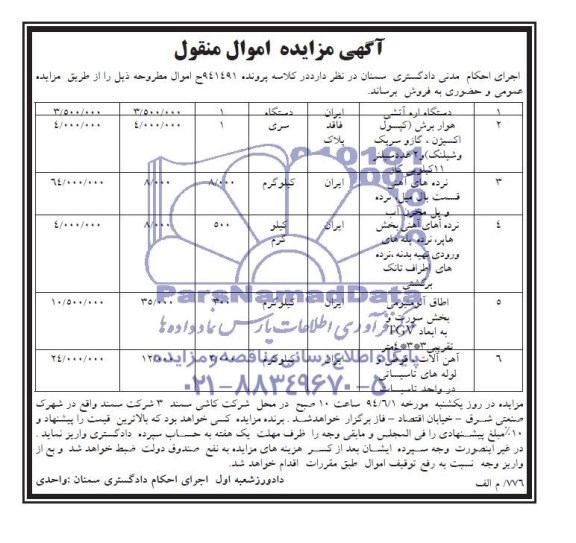 آگهی مزایده اموال منقول
اجرای احکام مدنی دادگستری سمنان در نظر دارددر کلاسه پرونده ۹۴۱۴۹۱ح اموال مطروحه ذیل را از طریق مزایده
عمومی و حضوری به فروش برساند.
۱ دستگاه اره آتشی ایران دستگاه ۱ ۳/۵۰۰/۰۰۰ ۳/۵۰۰/۰۰۰
۲ هوار برش (کپسول فاقد سری ۱ ۴/۰۰۰/۰۰۰ ۴/۰۰۰/۰۰۰
اکسیژن ، گازو سرپک پلاک
وشیلنگ)و۲عددسیلندر
۱۱کیلویی گاز
۳ نرده های آهنی ایران کیلوگرم ۸/۰۰۰ ۸/۰۰۰ ۶۴/۰۰۰/۰۰۰
قسمت بال میل نرده
و پل مخزن آب
۴ نرده های آهنی بخش ایران کیلو ۵۰۰ ۸/۰۰۰ ۴/۰۰۰/۰۰۰
هاپر، نرده پله های گرم
ورودی تهیه بدنه ،نرده
های اطراف تانک
برگشتی
۵ اطاق آلومینیومی ایران کیلوگرم ۳۰۰ ۳۵/۰۰۰ ۱۰/۵۰۰/۰۰۰
بخش سورت و
TGV به ابعاد
تقریبی ۳*۳*۴متر
۶ آهن آلات ، قوطی و ایران کیلوگرم ۱۲/۰۰۰ ۲۴/۰۰۰/۰۰۰
لوله های تاسیساتی
در واحد تاسیسات
ParsNamadData
فرآوری اطلاعات پارس نماد داده ها
پایگاه اطلاع رسانی مناقصه و مزایده
۰۲۱-۸۸۳۴۹۶۷۰-۵
مزایده در روز یکشنبه مورخه ۹۴/۶/۱ ساعت ۱۰ صبح در محل شرکت کاشی سمند ۳ شرکت سمند واقع در شهرک
صنعتی شرق – خیابان اقتصاد – فاز برگزار خواهدشد . برنده مزایده کسی خواهد بود که بالاترین قیمت را پیشنهاد و
۱۰٪مبلغ پیشنهادی را فی المجلس و مابقی وجه را ظرف مهلت یک هفته به حساب سپرده دادگستری واریز نماید .
در غیر اینصورت وجه سپرده ایشان بعد از کسر هزینه های مزایده به نفع صندوق دولت ضبط خواهد شد و بع از
واریز وجه نسبت به رفع توقیف اموال طبق مقررات اقدام خواهد شد.
دادورزشعبه اول اجرای احکام دادگستری سمنان :واحدی
۷۷۶/ م الف